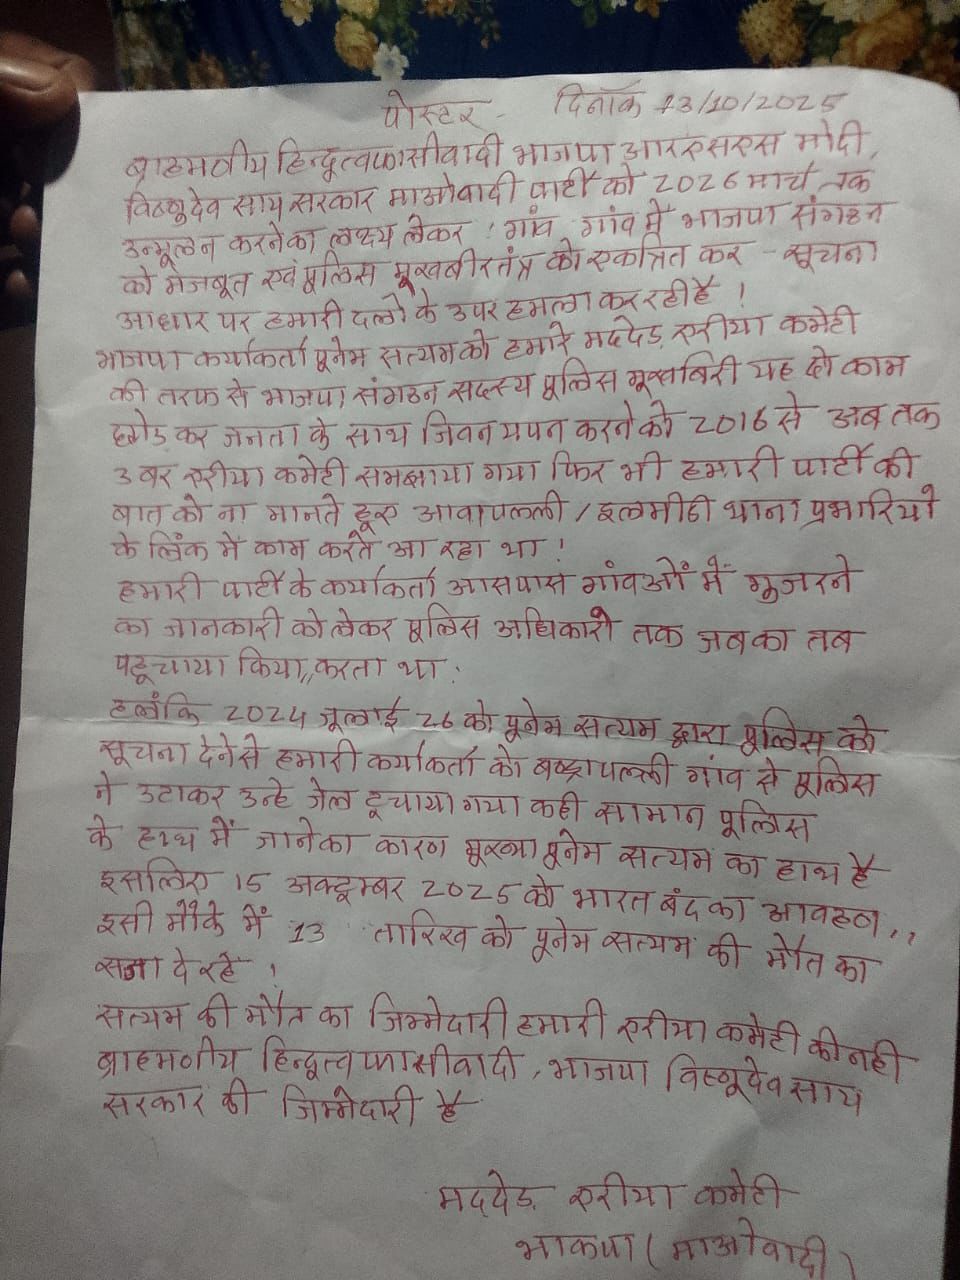 पोस्टर - दिनाँक 13/10/2025
ब्राहमणीय हिन्दूत्वफासीवादी भाजपा आरएसएस मोदी,
विष्णुदेव साय सरकार माओवादी पार्टी को 2026 मार्च तक
उन्मूलन करनेका लक्ष्य लेकर गांव गांव में भाजपा संगठन
को मजबूत एवं पुलिस मूखबीरतंत्र को एकत्रित कर - सूचना
आधार पर हमारी दलो के उपर हमला कर रही है !
भाजपा कर्याकर्ता पूनेम सत्यम को हमारे मददेड़ एरीया कमेटी
की तरफ से भाजपा संगठन सदस्य पूलिस मूखबिरी यह दो काम
छोड़ कर जनता के साथ जिवन यपन करने को 2016 से अब तक
3 बर एरीया कमेटी समझाया गया फिर भी हमारी पार्टी की
बात को ना मानते हूए आवापल्ली / इलमीडी थाना प्रभारियो
के लिंक में काम करते आ रहा था !
हमारी पार्टी के कर्याकर्ता आसपास गांवओं में गुजरने
का जानकारी को लेकर पूलिस अधिकारी तक जबका तब
पहूचाया किया,, करता था.
हलंकि 2024 जूलाई 26 को पूनेम सत्यम द्वारा पूलिस को
सूचना देने से हमारी कर्याकर्ता को गांव से पूलिस
ने उटाकर उन्हे जेल दूचाया गया कही सामान पूलिस
के हाथ में जानेका कारण पूनेम सत्यम का हाथ है
इसलिए 15 अक्टूम्बर 2025 को भारत बंद का आवहन,,
इसी मौके में 13 तारिख को पूनेम सत्यम की मौत का
सजा दे रहे !
सत्यम की मौत का जिम्मेदारी हमारी एरीया कमेटी की नही
ब्राहमणीय हिन्दूत्व फासीवादी, भाजपा विष्णूदेव साय
सरकार की जिम्मेदारी है
मददेड़ एरीया कमेटी
भाकपा (माओवादी)